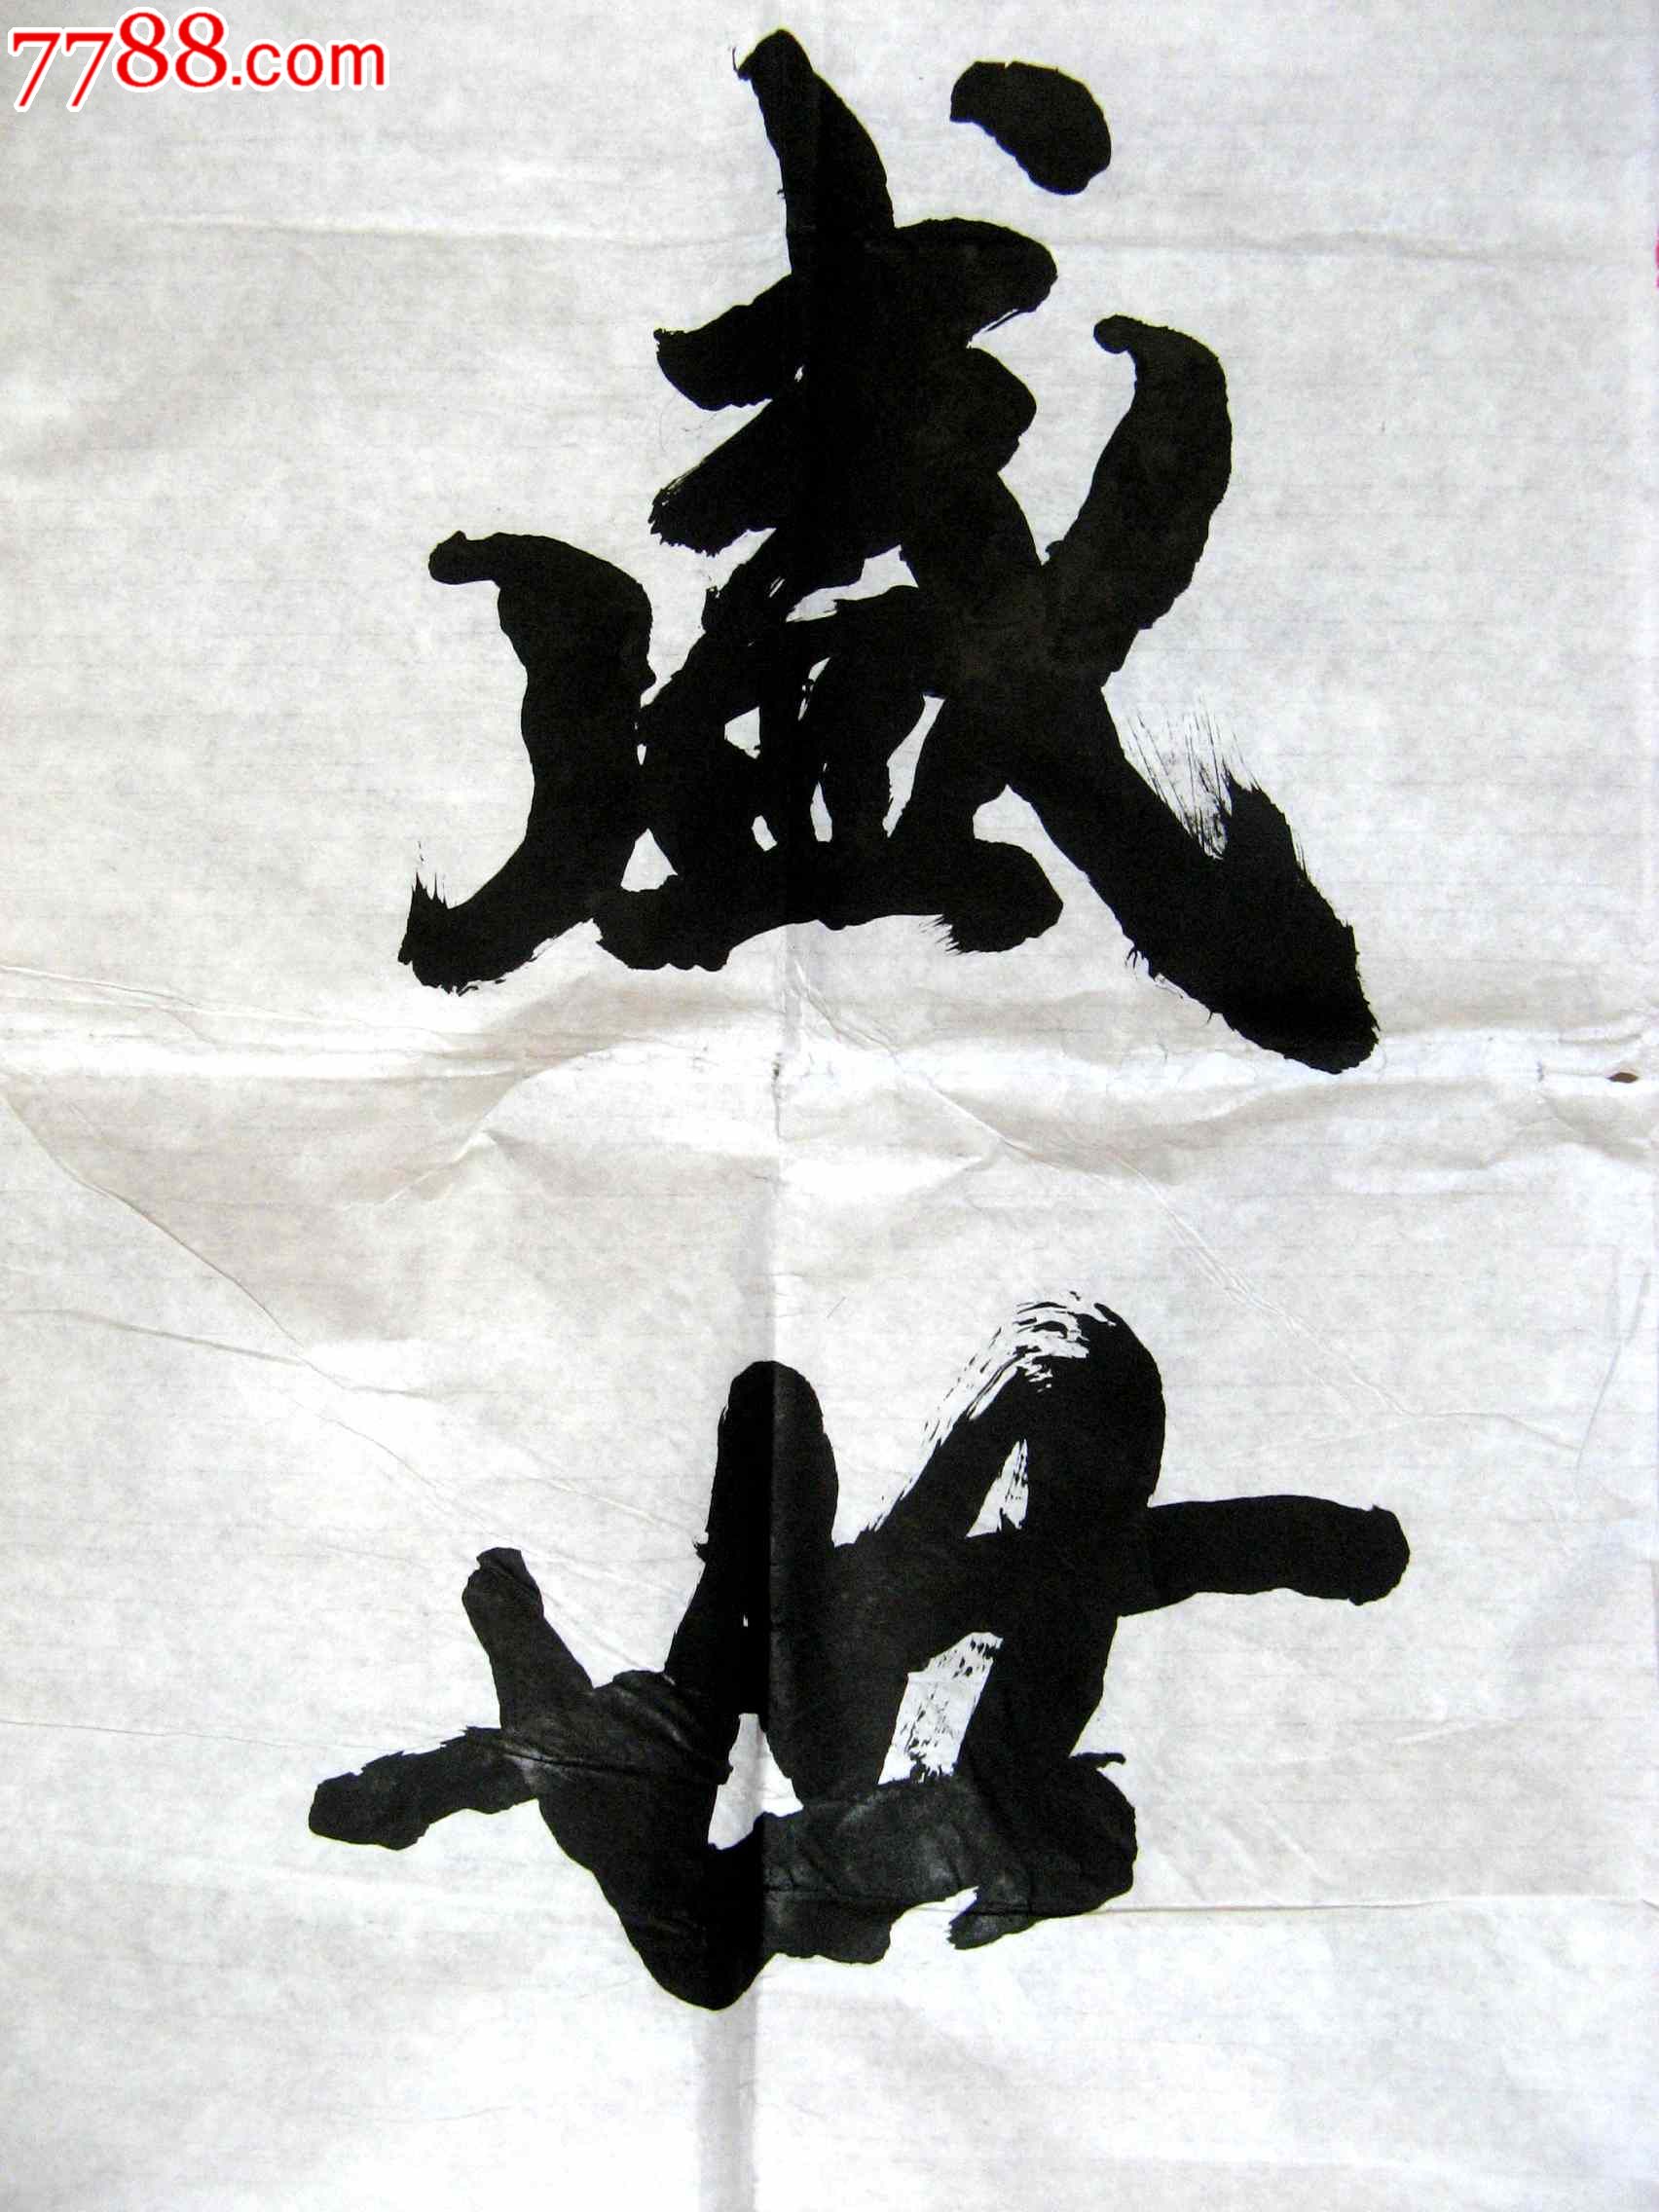 7788.com
盛世